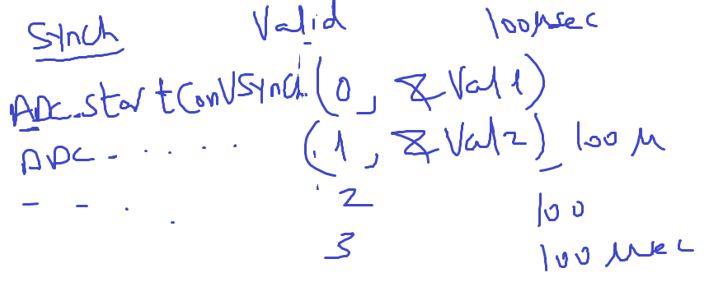 Synch Valid 100μsec
ADC.StartConvSynch(0, &Val1)
ADC - . . . . (1, &Val2) 100 μ
- - . . 2 100
3 100 μsec